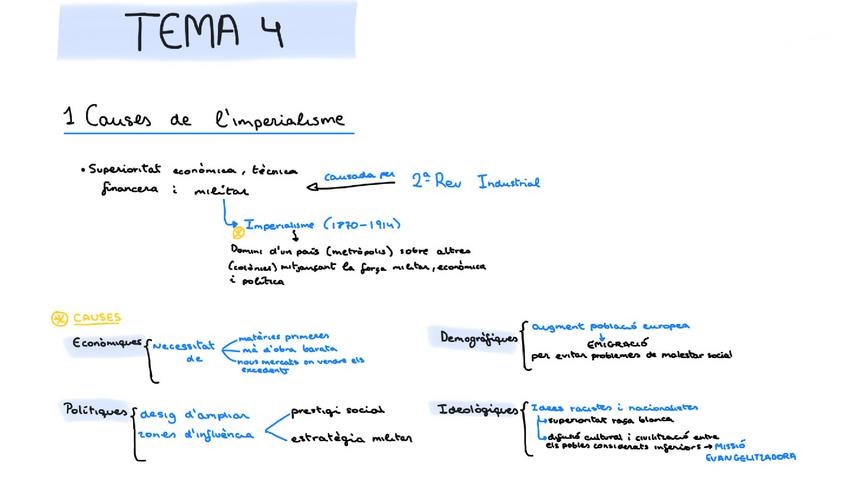 TEMA 4
1 Causes de l'imperialisme
• Superioritat econòmica, tècnica
financera i militar
causada per
2ª Rev Industrial
Imperialisme (1870-1914)
Domini d'un país (metròpolis) sobre altres
(colònies) mitjançant la força militar, econòmica
i política
CAUSES
Econòmiques
necessitat
de
matèries primeres
mà d'obra barata
nous mercats on vendre els
excedents
Demogràfiques
augment població europea
EMIGRACIÓ
per evitar problemes de malestar social
Polítiques
desig d'ampliar
zones d'influència
prestigi social
estratègia militar
Ideològiques
Idees racistes i nacionalistes
superioritat raça blanca
difusió cultural i civilització entre
els pobles considerats inferiors → MISSIÓ
EVANGELITZADORA